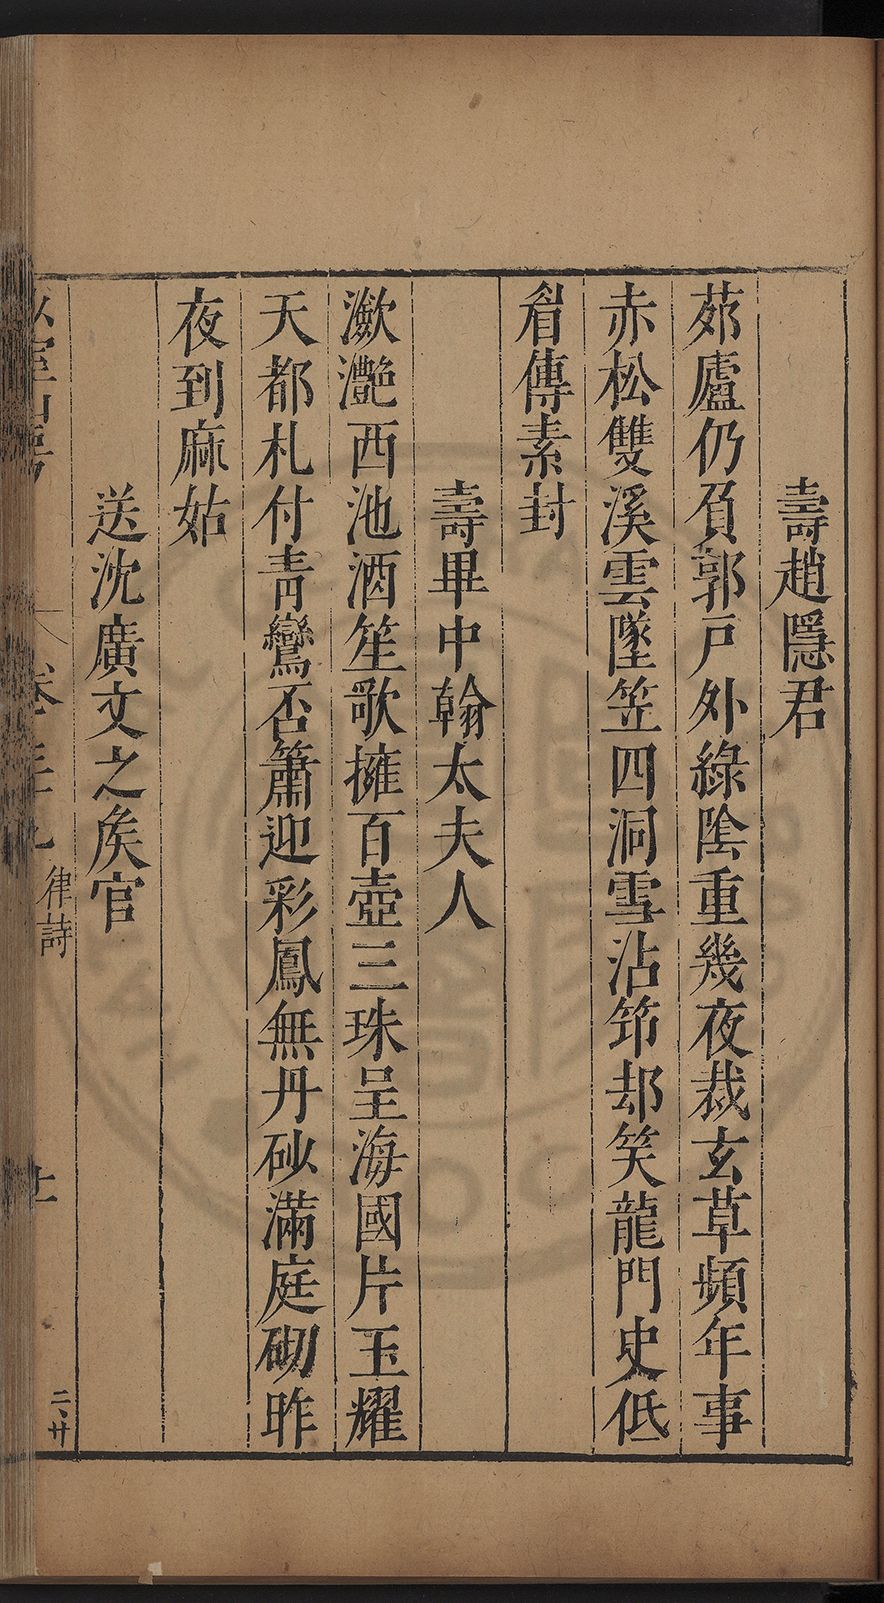 壽趙隱君
茆廬仍負郭戸外綠陰重幾夜裁玄草頻年事
赤松雙溪雲墜笠四洞雪沾笻却笑龍門史低
眉傳素封
壽畢中翰太夫人
瀲灔西池酒笙歌擁百壺三珠呈海國片玉耀
天都札付青鸞否簫迎彩鳳無丹砂滿庭砌昨
夜到麻姑
送沈廣文之矦官
律詩
二、廿